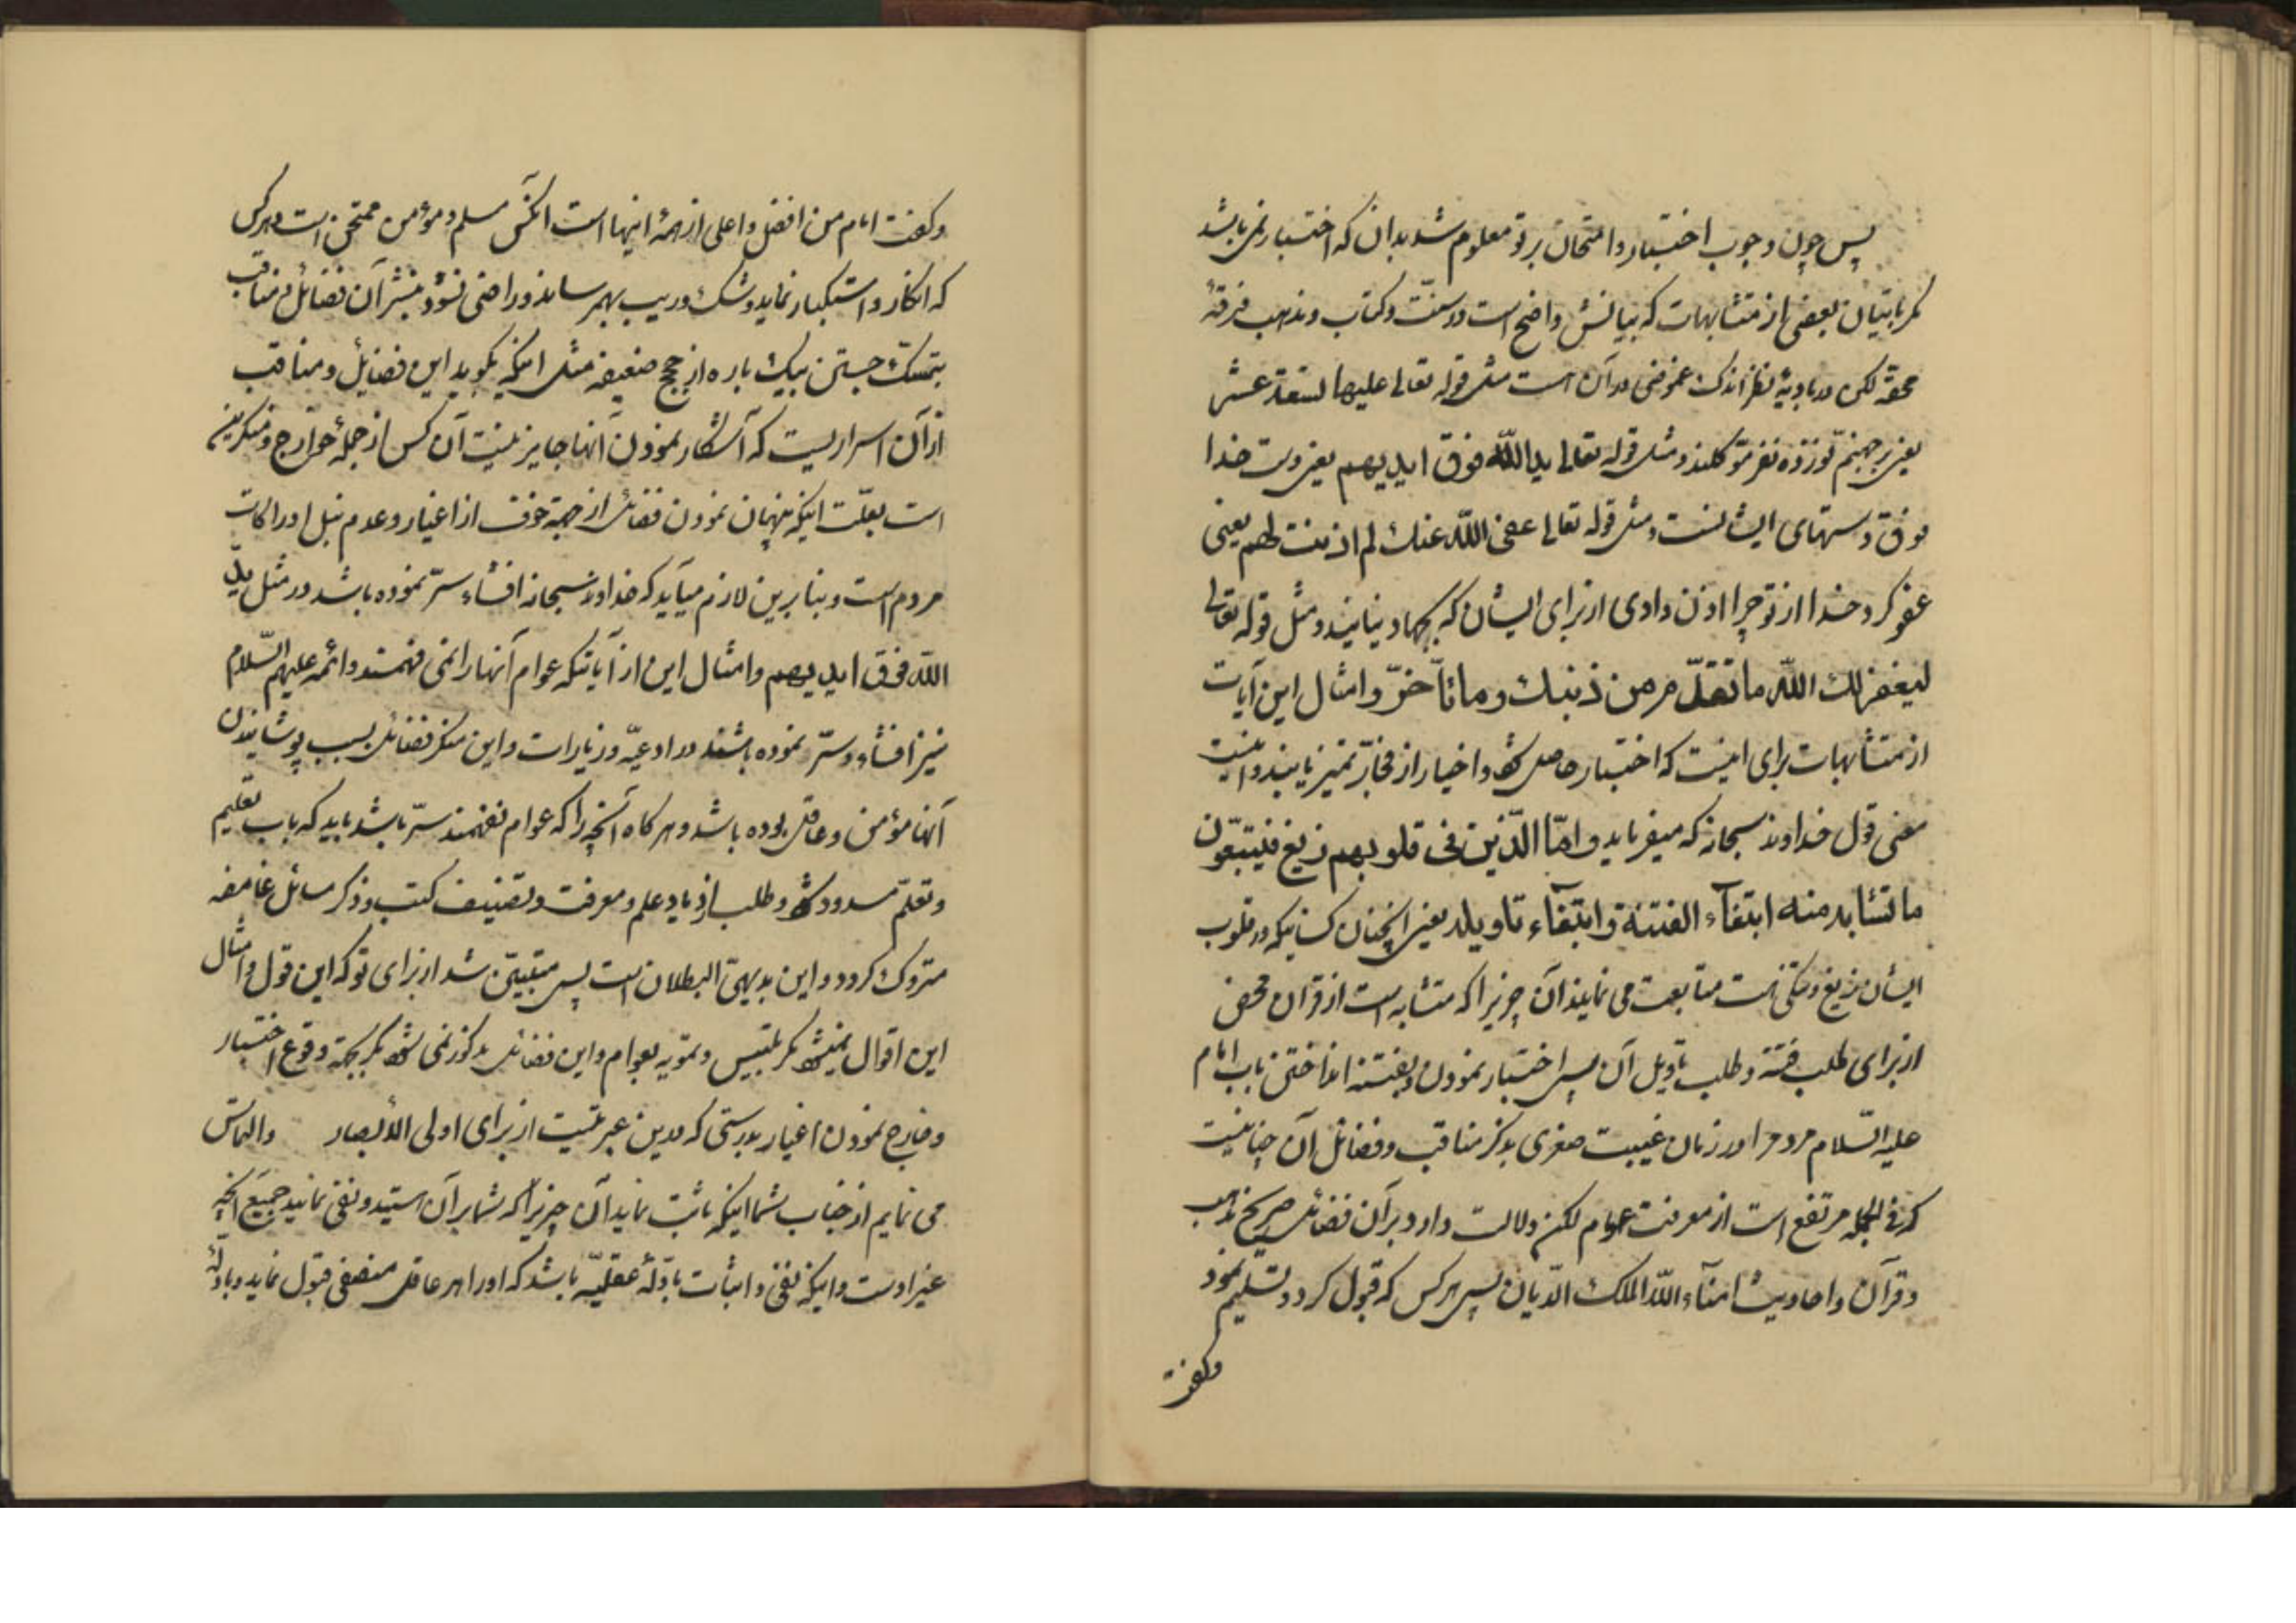 پس چون وجوب اختبار و امتحان بر تو معلوم شد بدان که اختبار نمی باشد
مگر باتیان بعضی از متشابهات که بیانش واضح است در سنّت و کتاب و مذهب فرقهٔ
محقه لکن در بادیهٔ نظر اندک غموضی در آن است مثل قوله تعالی علیها تسعة عشر
یعنی بر جهنم نوزده نفر موکلند و مثل قوله تعالی ید اللّه فوق ایدیهم یعنی دست خدا
فوق دستهای ایشانست و مثل قوله تعالی عفی اللّه عنک لم اذنت لهم یعنی
عفو کرد خدا از تو چرا اذن دادی از برای ایشان که بجهاد نیایند و مثل قوله تعالی
لیغفر لک اللّه ما تقدّم من ذنبک و ما تأخّر و امثال این آیات
از متشابهات برای اینست که اختبار حاصل شود و اخیار از فجّار تمیز یابند و اینست
معنی قول خداوند سبحانه که میفرماید و امّا الّذین فی قلوبهم زیغ فیتّبعون
ما تشابه منه ابتغآء الفتنة و ابتغآء تاویله یعنی انچنان کسانیکه در قلوب
ایشان زیغ و شکی است متابعت می نمایند آن چیزیرا که متشابه است از قرآن محض
از برای طلب فتنه و طلب تاویل آن پس اختبار نمودن و بفتنه انداختن باب امام
علیه السّلام مردم را در زمان غیبت صغری بذکر مناقب و فضائل آن چنانیست
که فی الجمله مرتفع است از معرفت عوام لکن دلالت دارد بر آن فضائل صریح مذهب
و قرآن و احادیث امنآء اللّه الملک الدّیان پس هر کس که قبول کرد و تسلیم نمود
و گفت
و گفت امام من افضل و اعلی از همهٔ اینها است انکس مسلم و مؤمن ممتحن است و هر کس
که انکار و استکبار نماید و شک و ریب بهم رساند و راضی نشود بنشر آن فضائل و مناقب
بتمسّک جستن بیک باره از حجج ضعیفه مثل اینکه بگوید این فضایل و مناقب
از آن اسراریست که آشکار نمودن آنها جایز نیست آن کس از جملهٔ خوارج و منکرین
است بعلّت اینکه پنهان نمودن فضائل از جهة خوف از اغیار و عدم نیل ادراکات
مردم است و بنا برین لازم میآید که خداوند سبحانه افشاء سرّ نموده باشد در مثل ید
اللّه فوق ایدیهم و امثال این از آیاتیکه عوام آنها را نمی فهمند و ائمه علیهم السّلام
نیز افشاء سرّ نموده باشند در ادعیّه و زیارات و این منکر فضائل بسبب پوشانیدن
آنها مؤمن و عاقل بوده باشد و هر کاه آنچه را که عوام نفهمند سرّ باشد باید که باب تعلیم
و تعلّم مسدود شود و طلب ازدیاد علم و معرفت و تصنیف کتب و ذکر مسائل غامضه
متروک گردد و این بدیهی البطلان است پس متبیّن شد از برای تو که این قول و امثال
این اقوال نمیشود مگر تلبیس و تمویه بعوام و این فضائل مذکور نمی شود مگر بجهة وقوع اختبار
و خارج نمودن اغیار بدرستی که در این عبرتیست از برای اولی الأبصار و التماس
می نمایم از جناب شما اینکه ثابت نماید آن چیزیرا که شما بر آن هستید و نفی نمائید جمیع انچه
غیر اوست و اینکه نفی و اثبات بادلّهٔ عقلیّه باشد که او را هر عاقل منصفی قبول نماید و بادلّهٔ